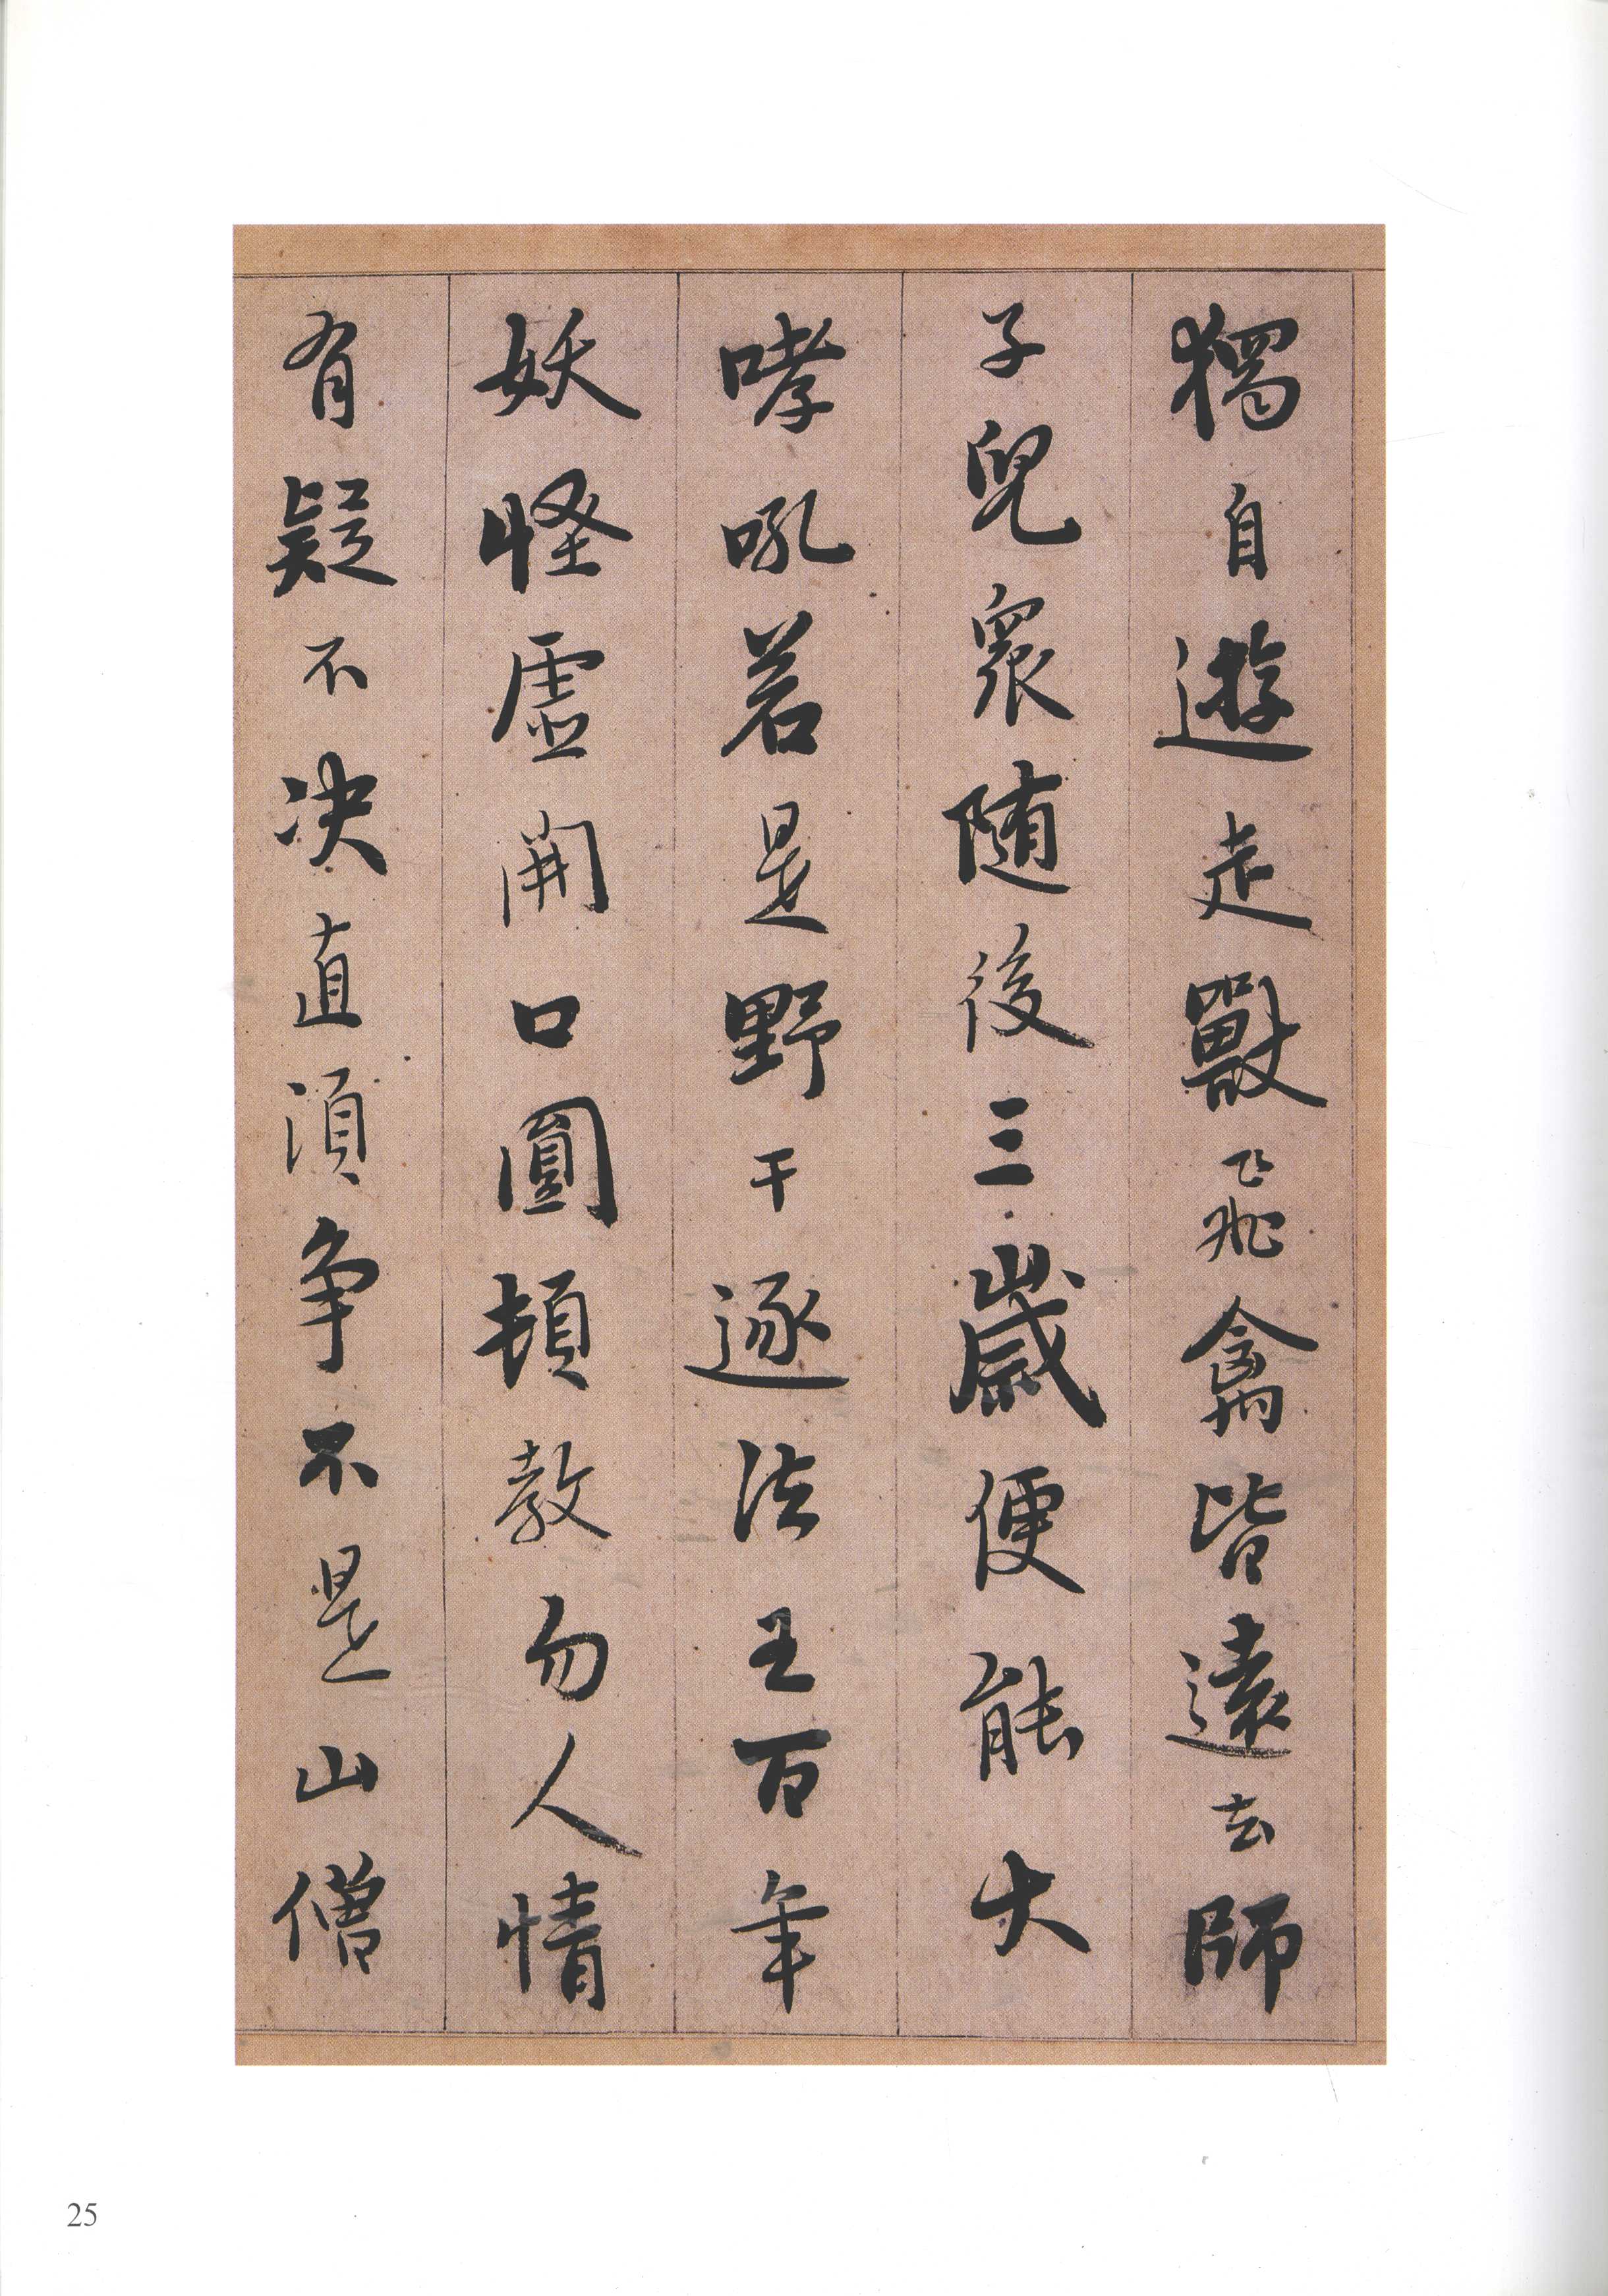 獨自遊走獸飛禽皆遠去師
子兒衆随後三歲便能大
哮吼若是野干逐法王百年
妖怪虛開口圓頓教勿人情
有疑不決直須争不是山僧
25